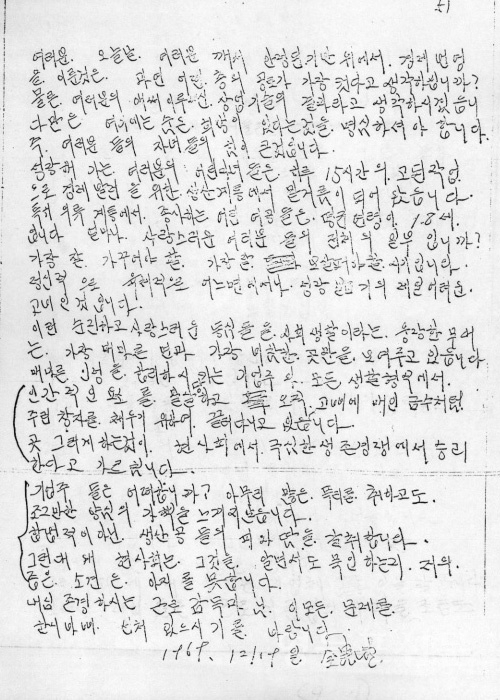 여러분. 오늘날. 여러분 께서 안정된 기반 위에서. 경제 번영
을 이룬것은. 과연 어떤. 층의 공로가 가장 컷다고 생각하십니까?
물론. 여러분의 애써 이루신. 상업기술의 결과라고 생각하시겠읍니
다만은 여기에는 숨은 희생이 있다는것을 명심하셔야 합니다.
즉. 여러분 들의 자녀 들의 힘이 큰것입니다.
성장해 가는. 여러분의 어린자녀들은. 하루 15시간의. 고된작업
으로 경제 발전을 위한. 생산계통에서 밑거름이 되어 왔읍니다.
특히 의류 계통에서. 종사하는 어린 여공들은. 평균 연령이 18세.
입니다 얼마나. 사랑스러운 여러분 들의 전체의 일부 입니까?
가장 잘. 가꾸어야 할. 가장 잘. 보살펴야 할. 시기입니다.
정신적 으로 육체적으로 어느면에서나. 성장 기의 제일 어려운.
고비인것 입니다.
이런 순진하고 사랑스러운 동심들을 사회 생활이라는. 웅장한 무대
는. 가장 메마른 면과 가장 비참한. 곳만을. 보여주고 있읍니다
메마른 인정을. 합리화시키는 기업주 와. 모든 생활형식에서.
인간적인 요소를 말살당하고 오직. 고삐에 매인 금수처럼
주린 창자를. 채우기 위하여. 끌려다니고 있읍니다.
곳 그렇게 하는것이. 현사회에서. 극심한 생존경쟁에서 승리
한다고 가르칩니다.
기업주 들은 어떠합니까? 아무리 많은. 폭리를. 취하고도.
조그만한 양심의 가책을 느끼지않읍니다.
합법적이 아닌. 생산공 들의 피와 땀을. 갈취합니다.
그런대 왜 현사회는. 그것을. 알면서도 묵인하는지. 저의.
좁은. 소견은. 알지를 못합니다.
내심 존경하시는 근로 감독관 님. 이모든. 문제를.
한시바삐. 선처 있으시기를. 바랍니다.
1969. 12월 19일.